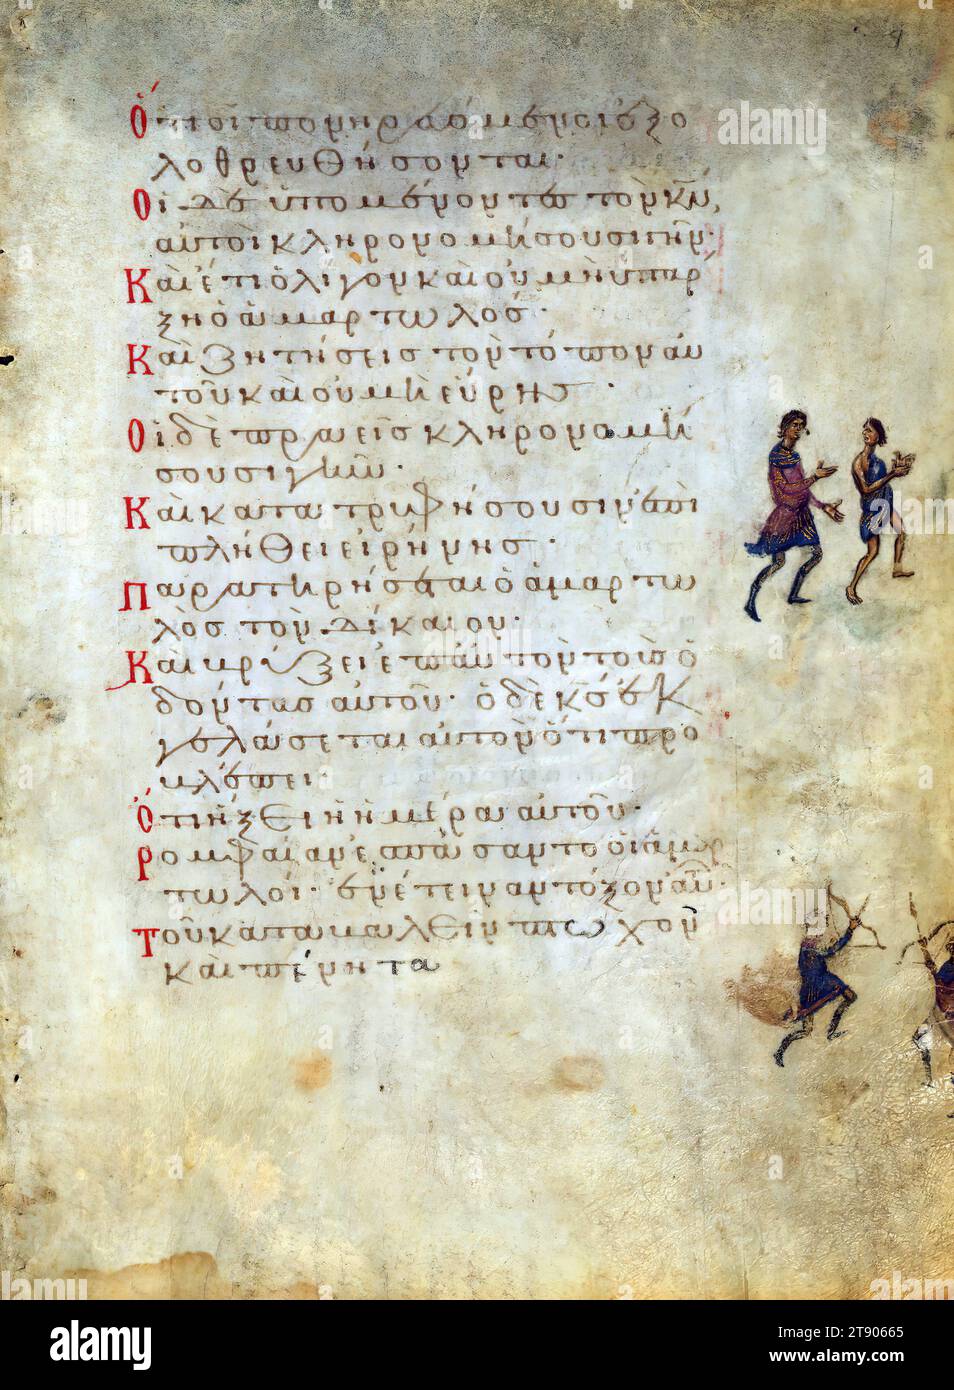 Ὅτι οἱ πονηρευόμενοι ἐξο
λοθρευθήσονται·
Οἱ δὲ ὑπομένοντες τὸν κν̄,
αὐτοὶ κληρονομήσουσι γῆν·
Καὶ ἔτι ὀλίγον καὶ οὐ μὴ ὑπάρ
ξῃ ὁ ἁμαρτωλός·
Καὶ ζητήσεις τὸν τόπον αὐ
τοῦ καὶ οὐ μὴ εὕρῃς·
Οἱ δὲ πραεῖς κληρονομή
σουσι γῆν·
Καὶ κατατρυφήσουσιν ἐπὶ
πλήθει εἰρήνης·
Παρατηρήσεται ὁ ἁμαρτω
λὸς τὸν δίκαιον·
Καὶ βρύξει ἐπ' αὐτὸν τοὺς ὀ
δόντας αὐτοῦ· ὁ δὲ κς̄ ἐκ
γελάσεται αὐτὸν ὅτι προ
βλέπει·
Ὅτι ἥξει ἡ ἡμέρα αὐτοῦ·
Ῥομφαίαν ἐσπάσαντο οἱ ἁμαρ
τωλοί· ἐνέτειναν τόξον αὐτῶν·
Τοῦ καταβαλεῖν πτωχὸν
καὶ πένητα
alamy
Image ID: 2T90665
www.alamy.com